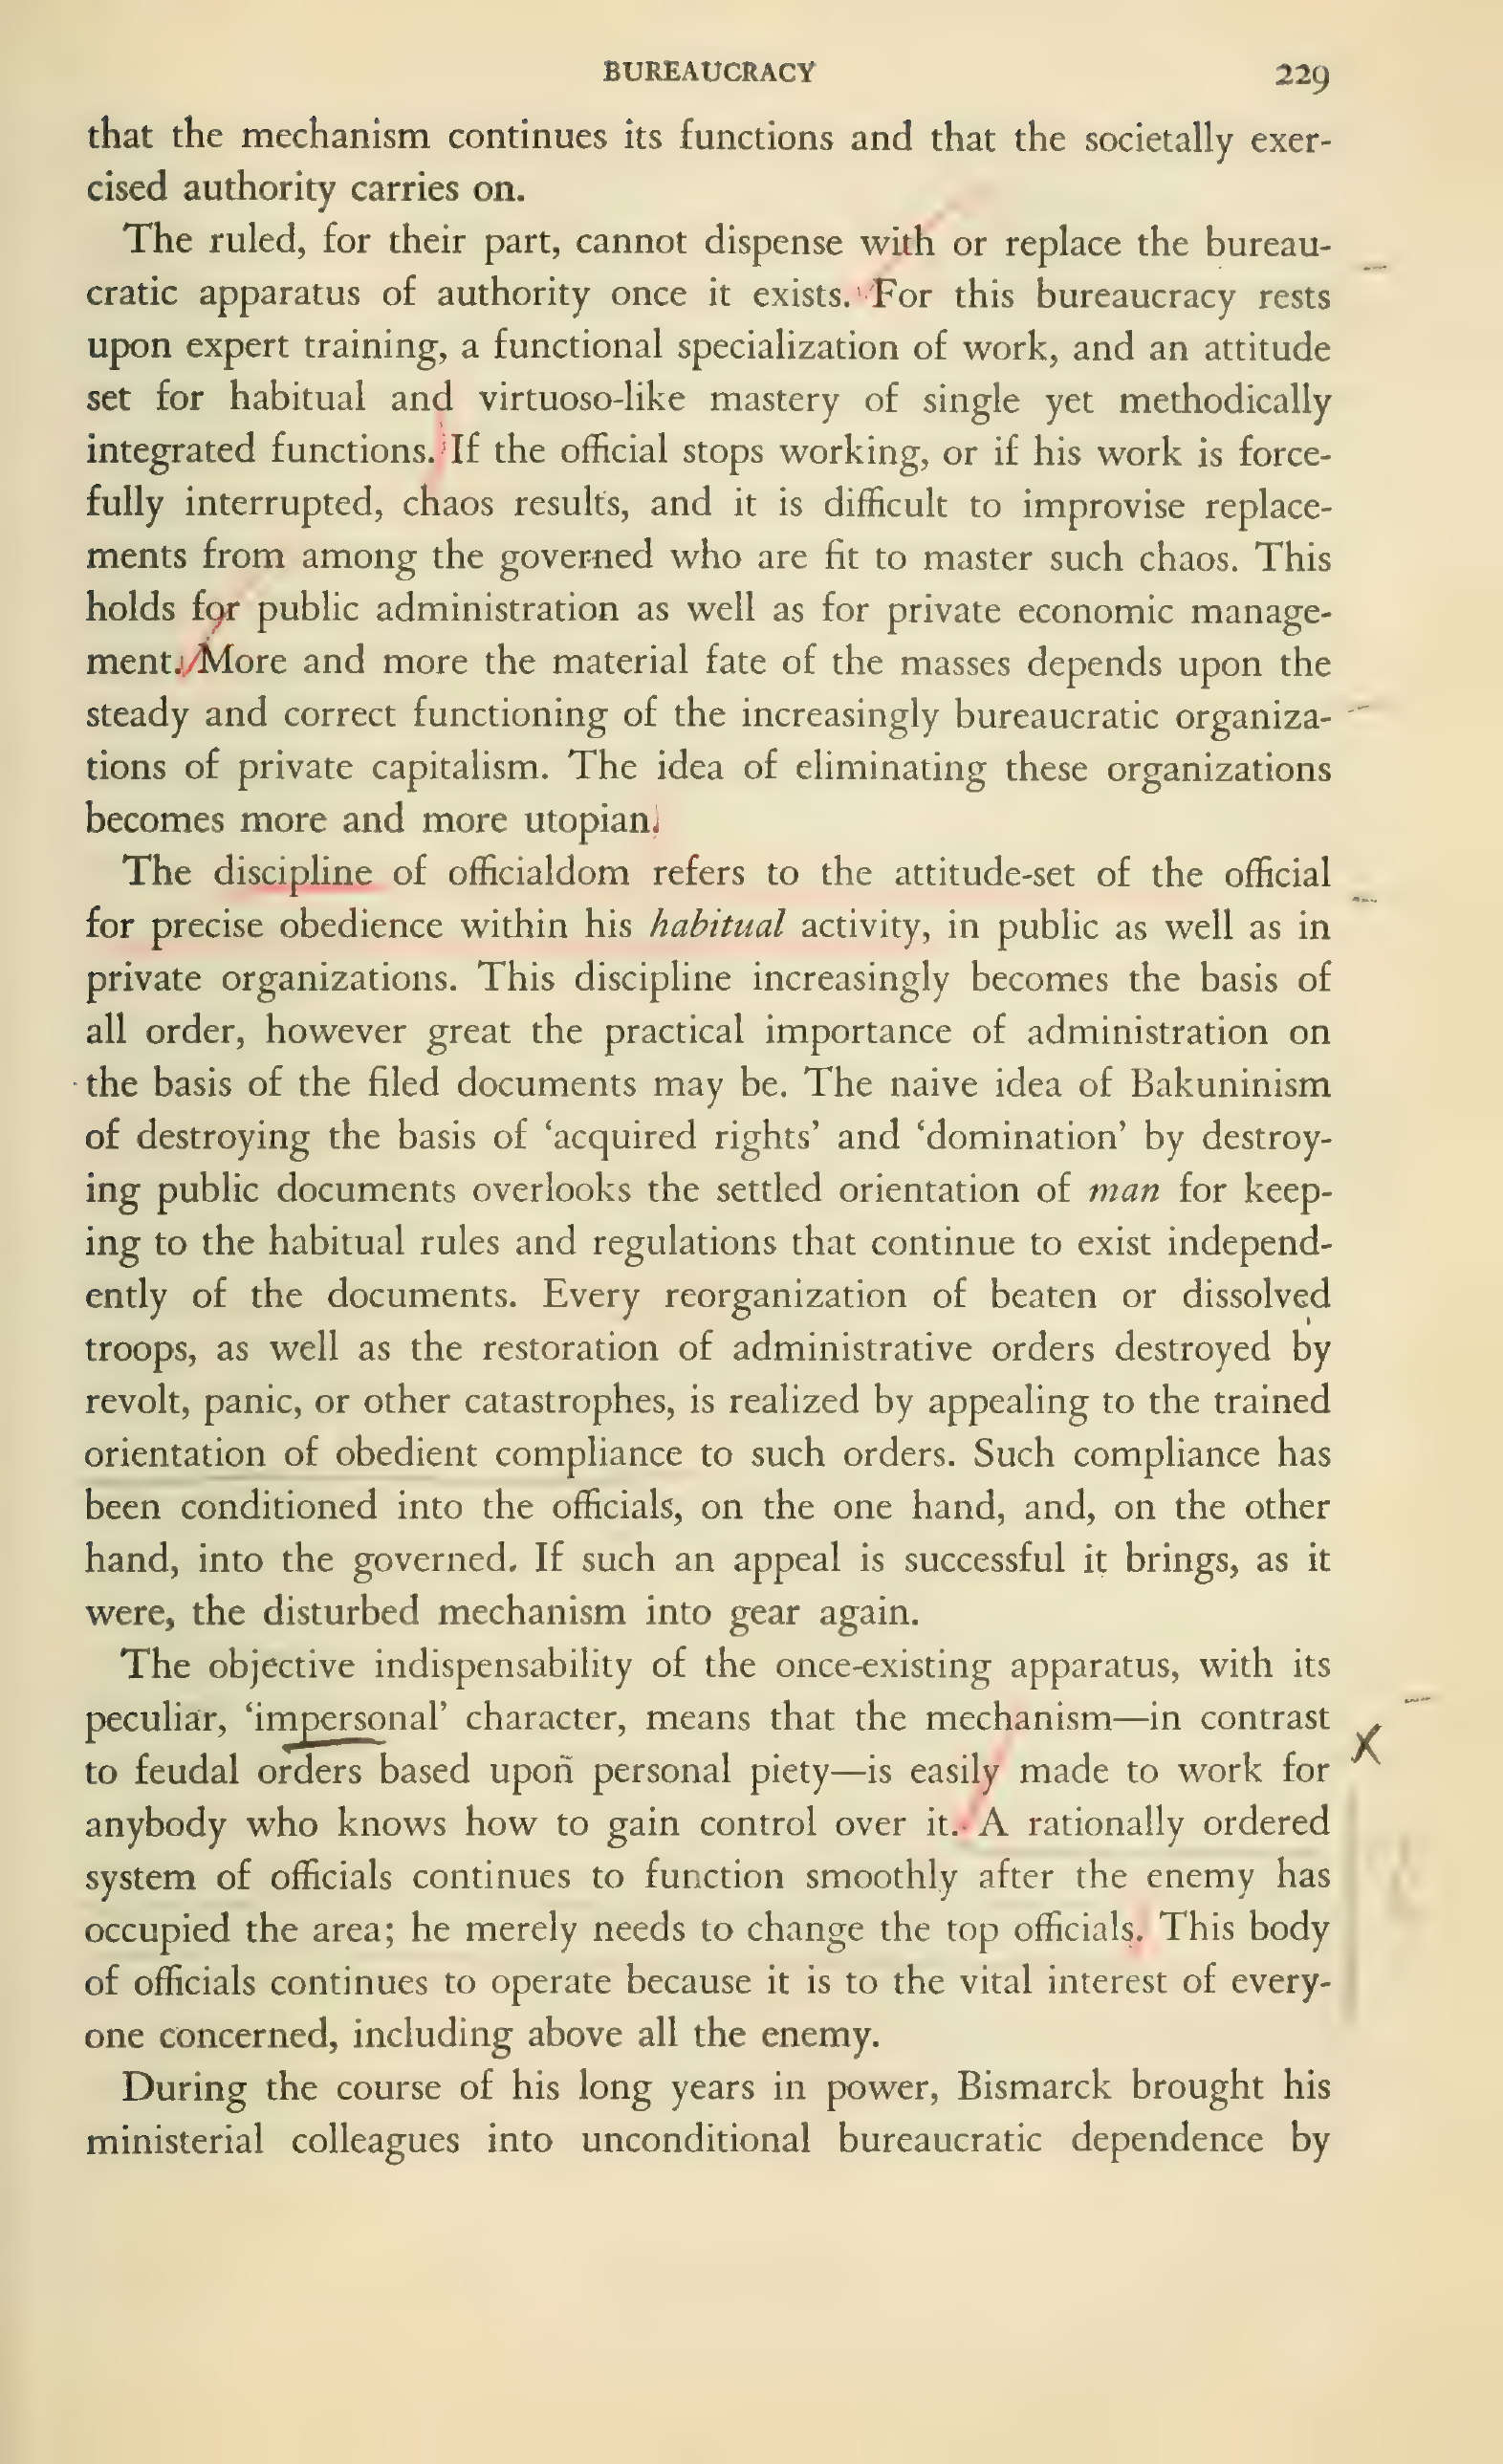 BUREAUCRACY 229
that the mechanism continues its functions and that the societally exer-
cised authority carries on.
The ruled, for their part, cannot dispense with or replace the bureau-
cratic apparatus of authority once it exists. For this bureaucracy rests
upon expert training, a functional specialization of work, and an attitude
set for habitual and virtuoso-like mastery of single yet methodically
integrated functions. If the official stops working, or if his work is force-
fully interrupted, chaos results, and it is difficult to improvise replace-
ments from among the governed who are fit to master such chaos. This
holds for public administration as well as for private economic manage-
ment. More and more the material fate of the masses depends upon the
steady and correct functioning of the increasingly bureaucratic organiza-
tions of private capitalism. The idea of eliminating these organizations
becomes more and more utopian.
The discipline of officialdom refers to the attitude-set of the official
for precise obedience within his habitual activity, in public as well as in
private organizations. This discipline increasingly becomes the basis of
all order, however great the practical importance of administration on
the basis of the filed documents may be. The naive idea of Bakuninism
of destroying the basis of ‘acquired rights’ and ‘domination’ by destroy-
ing public documents overlooks the settled orientation of man for keep-
ing to the habitual rules and regulations that continue to exist independ-
ently of the documents. Every reorganization of beaten or dissolved
troops, as well as the restoration of administrative orders destroyed by
revolt, panic, or other catastrophes, is realized by appealing to the trained
orientation of obedient compliance to such orders. Such compliance has
been conditioned into the officials, on the one hand, and, on the other
hand, into the governed. If such an appeal is successful it brings, as it
were, the disturbed mechanism into gear again.
The objective indispensability of the once-existing apparatus, with its
peculiar, ‘impersonal’ character, means that the mechanism—in contrast
to feudal orders based upon personal piety—is easily made to work for
anybody who knows how to gain control over it. A rationally ordered
system of officials continues to function smoothly after the enemy has
occupied the area; he merely needs to change the top officials. This body
of officials continues to operate because it is to the vital interest of every-
one concerned, including above all the enemy.
During the course of his long years in power, Bismarck brought his
ministerial colleagues into unconditional bureaucratic dependence by